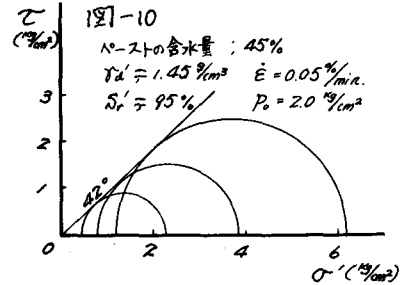 τ 図-10
(kg/cm²)
ペーストの含水量 ; 45%
γd' ≒ 1.45 g/cm³ ε̇ = 0.05 %/min.
Sr' ≒ 95% P₀ = 2.0 kg/cm²
3
2
1
42°
0 2 4 6
σ' (kg/cm²)